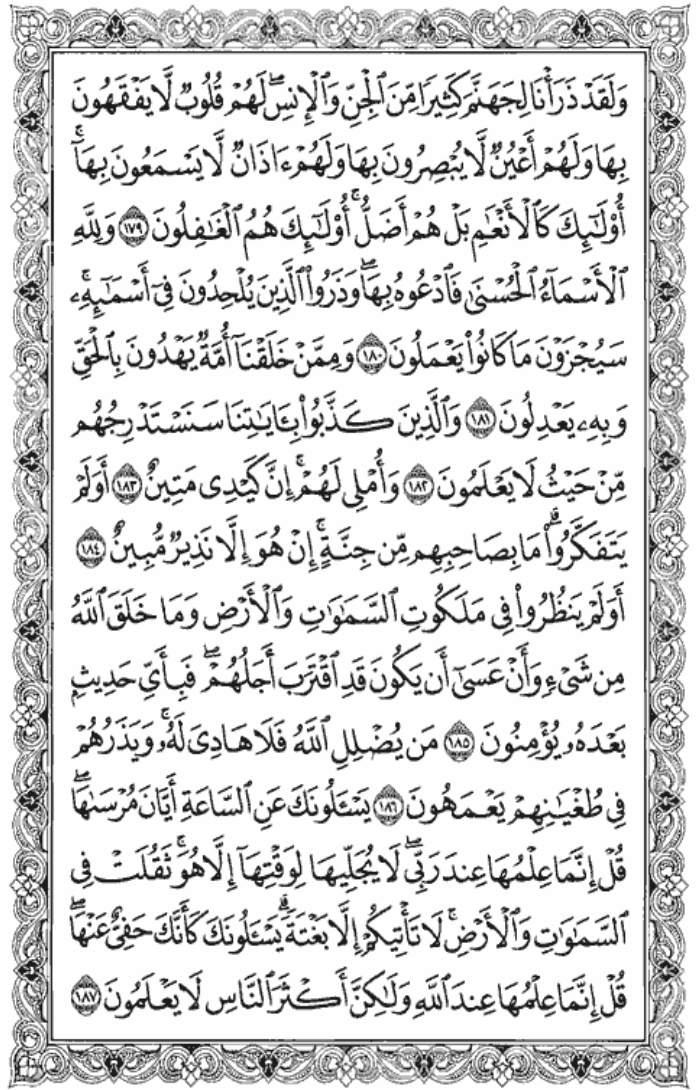 وَلَقَدْ ذَرَأْنَا لِجَهَنَّمَ كَثِيرًا مِّنَ ٱلْجِنِّ وَٱلْإِنسِۖ لَهُمْ قُلُوبٌ لَّا يَفْقَهُونَ
بِهَا وَلَهُمْ أَعْيُنٌ لَّا يُبْصِرُونَ بِهَا وَلَهُمْ ءَاذَانٌ لَّا يَسْمَعُونَ بِهَآۚ
أُو۟لَٰٓئِكَ كَٱلْأَنْعَٰمِ بَلْ هُمْ أَضَلُّۚ أُو۟لَٰٓئِكَ هُمُ ٱلْغَٰفِلُونَ ١٧٩ وَلِلَّهِ
ٱلْأَسْمَآءُ ٱلْحُسْنَىٰ فَٱدْعُوهُ بِهَاۖ وَذَرُوا۟ ٱلَّذِينَ يُلْحِدُونَ فِىٓ أَسْمَٰٓئِهِۦۚ
سَيُجْزَوْنَ مَا كَانُوا۟ يَعْمَلُونَ ١٨٠ وَمِمَّنْ خَلَقْنَآ أُمَّةٌ يَهْدُونَ بِٱلْحَقِّ
وَبِهِۦ يَعْدِلُونَ ١٨١ وَٱلَّذِينَ كَذَّبُوا۟ بِـَٔايَٰتِنَا سَنَسْتَدْرِجُهُم
مِّنْ حَيْثُ لَا يَعْلَمُونَ ١٨٢ وَأُمْلِى لَهُمْۚ إِنَّ كَيْدِى مَتِينٌ ١٨٣ أَوَلَمْ
يَتَفَكَّرُوا۟ۗ مَا بِصَاحِبِهِم مِّن جِنَّةٍۚ إِنْ هُوَ إِلَّا نَذِيرٌ مُّبِينٌ ١٨٤
أَوَلَمْ يَنظُرُوا۟ فِى مَلَكُوتِ ٱلسَّمَٰوَٰتِ وَٱلْأَرْضِ وَمَا خَلَقَ ٱللَّهُ
مِن شَىْءٍ وَأَنْ عَسَىٰٓ أَن يَكُونَ قَدِ ٱقْتَرَبَ أَجَلُهُمْۖ فَبِأَىِّ حَدِيثٍۭ
بَعْدَهُۥ يُؤْمِنُونَ ١٨٥ مَن يُضْلِلِ ٱللَّهُ فَلَا هَادِىَ لَهُۥۚ وَيَذَرُهُمْ
فِى طُغْيَٰنِهِمْ يَعْمَهُونَ ١٨٦ يَسْـَٔلُونَكَ عَنِ ٱلسَّاعَةِ أَيَّانَ مُرْسَىٰهَاۖ
قُلْ إِنَّمَا عِلْمُهَا عِندَ رَبِّىۖ لَا يُجَلِّيهَا لِوَقْتِهَآ إِلَّا هُوَۚ ثَقُلَتْ فِى
ٱلسَّمَٰوَٰتِ وَٱلْأَرْضِۚ لَا تَأْتِيكُمْ إِلَّا بَغْتَةًۗ يَسْـَٔلُونَكَ كَأَنَّكَ حَفِىٌّ عَنْهَاۖ
قُلْ إِنَّمَا عِلْمُهَا عِندَ ٱللَّهِ وَلَٰكِنَّ أَكْثَرَ ٱلنَّاسِ لَا يَعْلَمُونَ ١٨٧